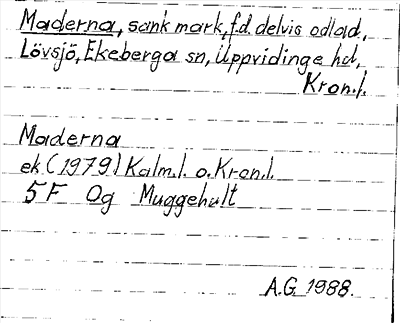 Maderna, sank mark, f.d. delvis odlad,
Lövsjö, Ekeberga sn, Uppvidinge hd,
Kron.l.
Maderna
ek. (1979) Kalm.l. o. Kron.l.
5F Og Muggehult
A.G. 1988.